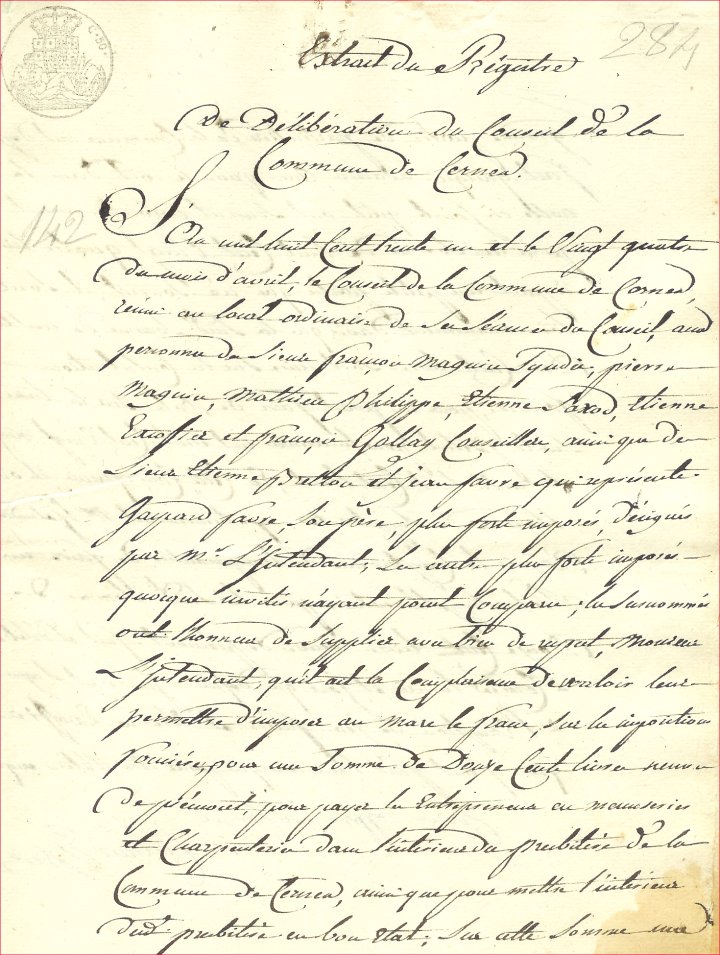 C. 50
284
Extrait du Régistre
De Délibération du Conseil de la
Commune de Cernex.
142
L'An mil huit Cent trente un et le Vingt quatre
du mois d'avril, le Conseil de la Commune de Cernex,
réuni au local ordinaire de ses Séances du Conseil, aux
personnes de Sieur françois Magnin Syndic, pierre
Magnin, Mathieu Philippe, Etienne Saxod, Etienne
Excoffier et françois Gollay Conseillers, ainsi que de
Sieur Etienne et jean favre qui représente
Gaspard favre Son père, plus forts imposés, désignés
par mr. L'Intendant; Les autres plus forts imposés
quoique invités n'ayant point Comparu; les Susnommés
ont l'honneur de Supplier avec bien de respect, Monsieur
L'Intendant, qu'il ait la Complaisance de vouloir leur
permettre d'imposer au marc le franc, sur les impositions
foncière, pour une Somme de Douze Cents livres neuves
de piémont, pour payer les Entrepreneurs en menuseries
et Charpenterie dans l'intérieur du presbitère de la
Commune de Cernex, ainsi que pour mettre l'intérieur
dud. presbitère en bon état; Sur cette Somme une